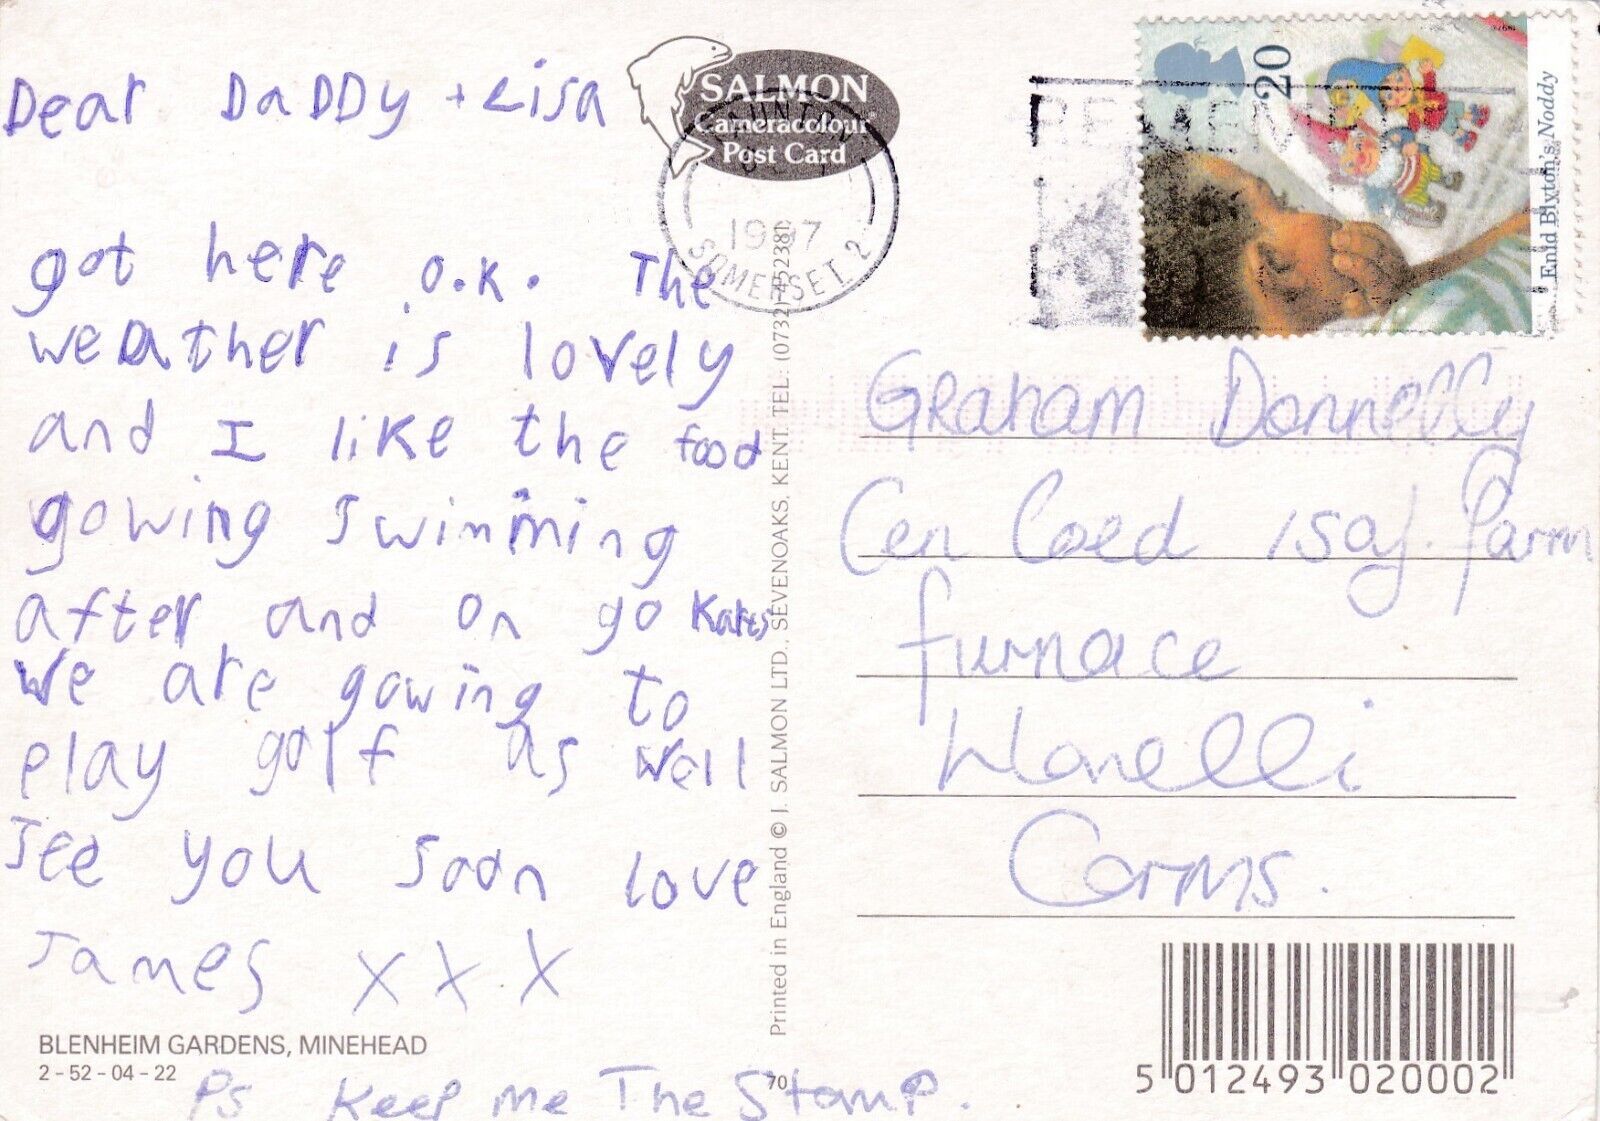 Dear DaDDy + Lisa
got here o.k. The
weather is lovely
and I like the food
gowing swimming
after and on go karts
We are gowing to
play golf as well
See you soon love
James X X X
BLENHEIM GARDENS, MINEHEAD
2 - 52 - 04 - 22
Ps Keep me The Stamp.
SALMON
Cameracolour
Post Card
TAUNTON
1997
SOMERSET. 2
Printed in England © J. SALMON LTD., SEVENOAKS, KENT. TEL: (0732) 452381
70
20
Enid Blyton's Noddy
Graham Donnelly
Cen Coed Isaf. Farm
furnace
Llanelli
Carms.
5 012493 020002